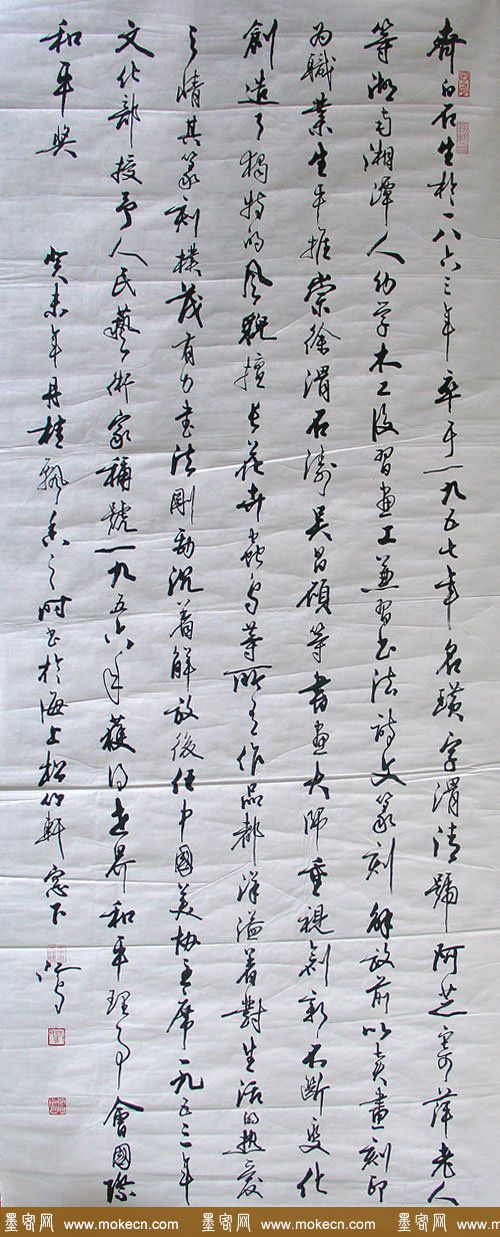 齊白石生於一八六三年卒于一九五七年名璜字渭清號阿芝寄萍老人
等湖南湘潭人幼学木工後習畫工兼習书法詩文篆刻解放前以卖畫刻印
为職業生平推崇徐渭石濤吴昌碩等書畫大师重視創新不断变化
創造了獨特的风貌擅长花卉虫鸟等所有作品都洋溢着對生活的热爱
之情其篆刻樸茂有力书法剛勁沉着解放後任中國美协主席一九五三年
文化部授予人民藝術家稱號一九五六年獲得世界和平理事會國際
和平奖
癸未年丹桂飄香之时书於海上松竹軒窓下
墨客网 www.mokecn.com 墨客网 www.mokecn.com 墨客网 www.mo